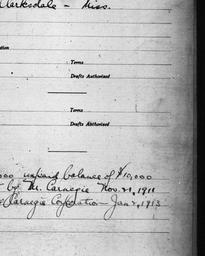 Clarksdale - Miss.
Terms
Drafts Authorized
Terms
Drafts Authorized
000 unpaid balance of $10,000
by Mr. Carnegie Nov. 21, 1911
Carnegie Corporation - Jan 2, 1913